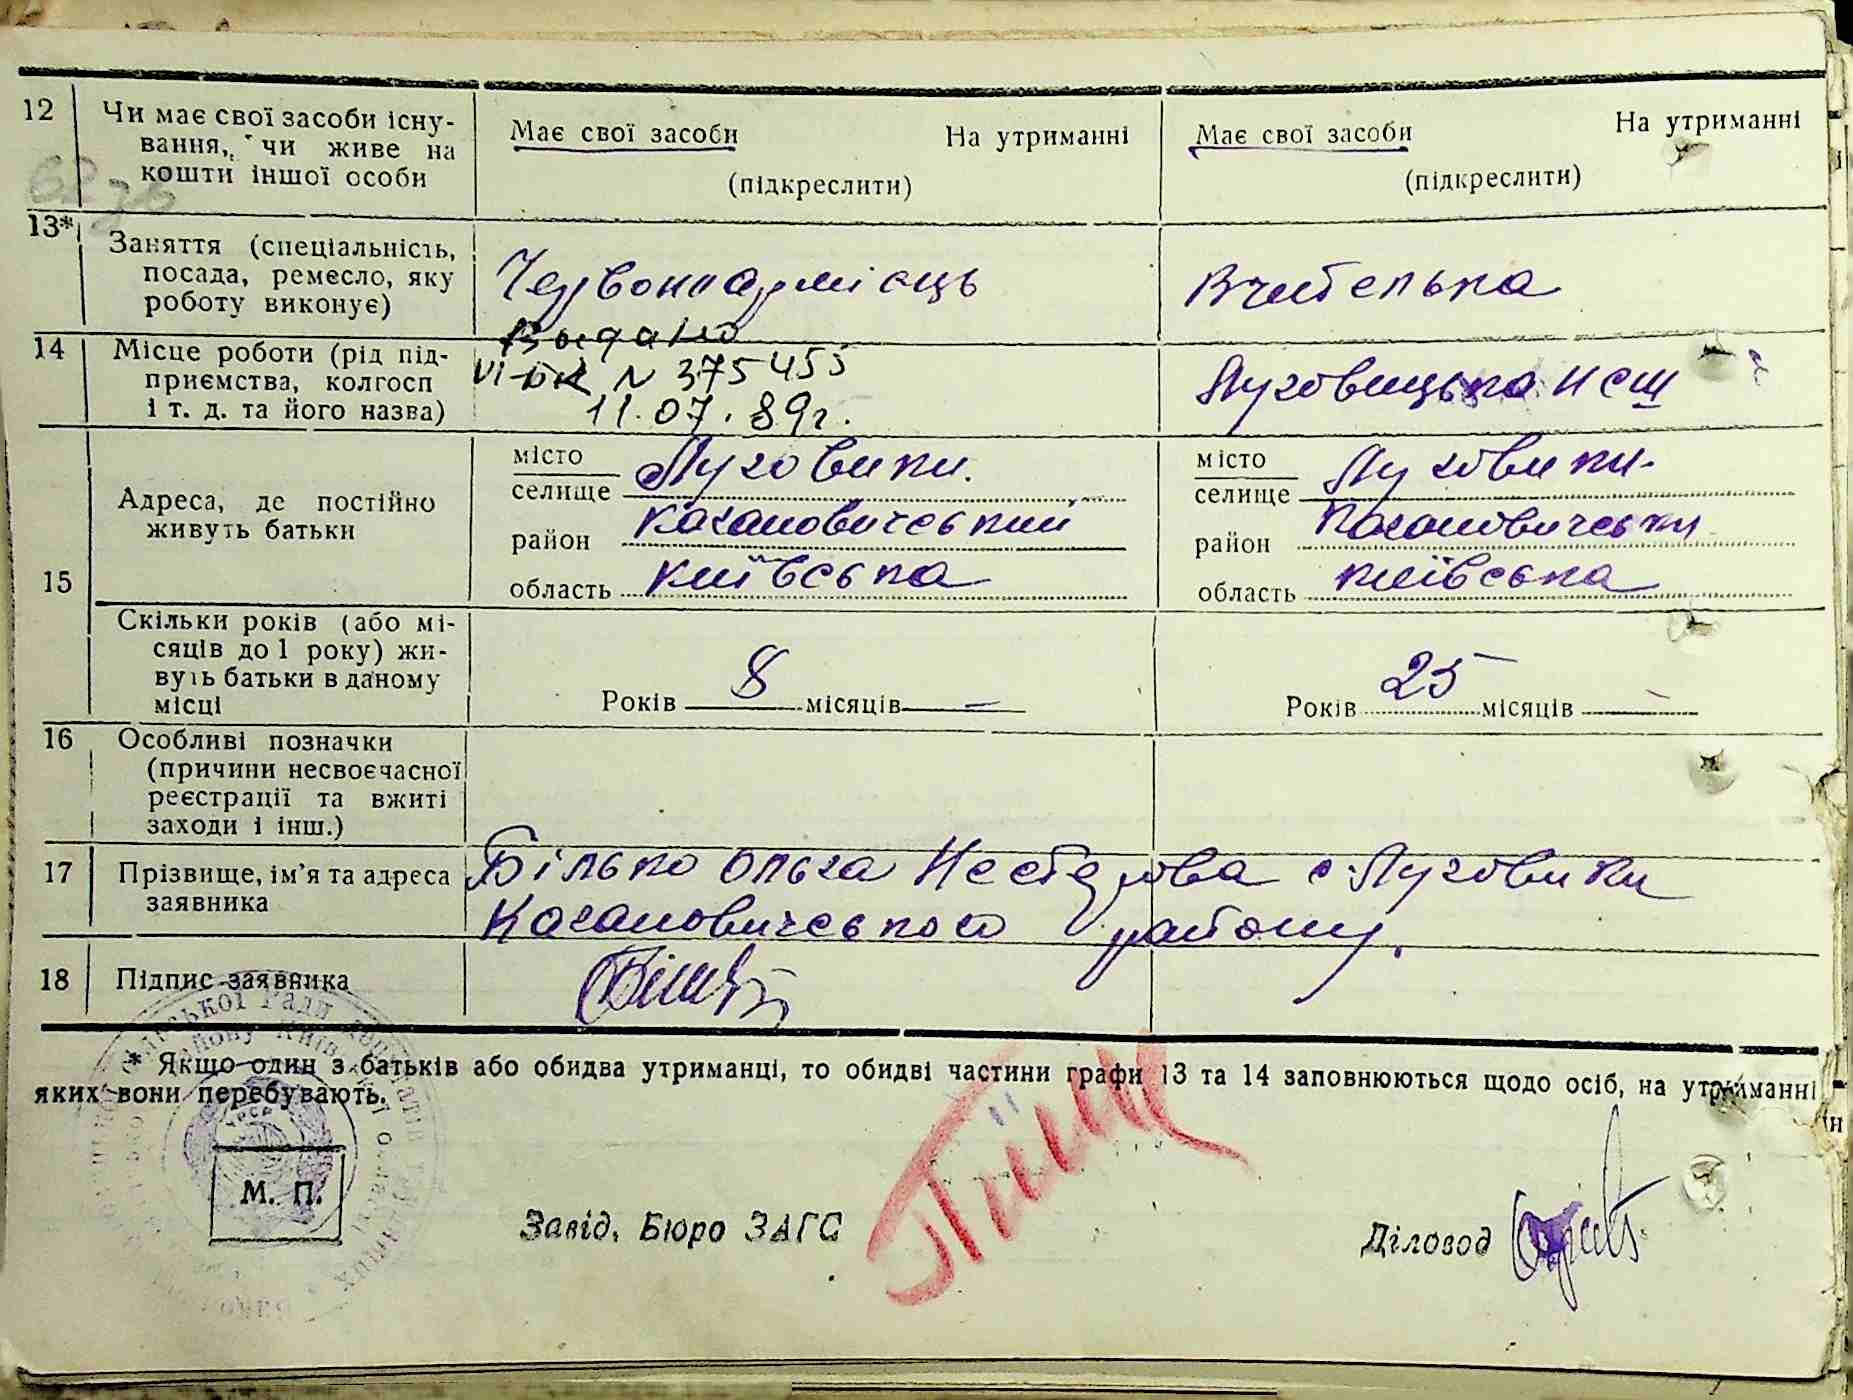 12 Чи має свої засоби існу-
вання, чи живе на
кошти іншої особи
Має свої засоби На утриманні
(підкреслити)
Має свої засоби На утриманні
(підкреслити)
13*
Заняття (спеціальність,
посада, ремесло, яку
роботу виконує)
Червоноармієць
Вчителька
14 Місце роботи (рід під-
приємства, колгосп
і т. д. та його назва)
Выдано
VI-БК N 375455
11.07.89г.
Луговицька НСШ
15
Адреса, де постійно
живуть батьки
місто
селище Луговики.
район Кагановичський
область Київська
місто
селище Луговики.
район Кагановичськи
область Київська
Скільки років (або мі-
сяців до 1 року) жи-
вуть батьки в даному
місці
Років 8 місяців —
Років 25 місяців —
16 Особливі позначки
(причини несвоєчасної
реєстрації та вжиті
заходи і інш.)
17 Прізвище, ім'я та адреса
заявника
Білько Ольга Нестерова с. Луговики
Кагановичського району.
18 Підпис заявника
* Якщо один з батьків або обидва утриманці, то обидві частини графи 13 та 14 заповнюються щодо осіб, на утриманні
яких вони перебувають.
М. П.
Завід. Бюро ЗАГС
Діловод